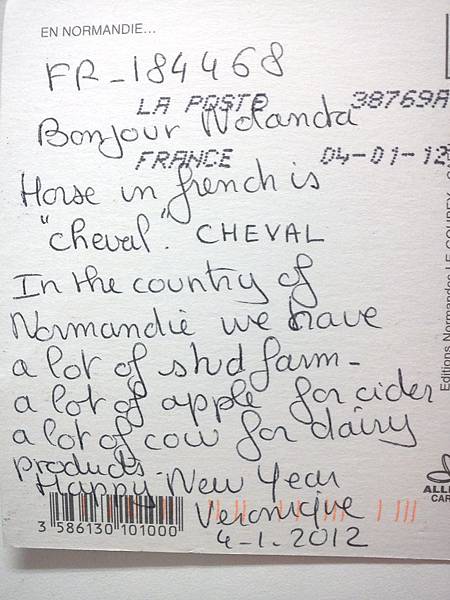 EN NORMANDIE...
FR-184468
LA POSTE 38769A
Bonjour Wolanda
FRANCE 04-01-12
Horse in french is
"cheval". CHEVAL
In the country of
Normandie we have
a lot of stud farm-
a lot of apple for cider
a lot of cow for dairy
products.
Happy New Year
Veronique
4-1.2012
3 586130 101000
Editions Normandes LE GOUBEY
ALL
CAR